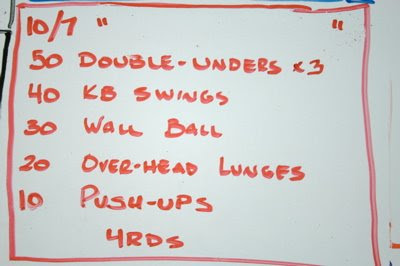 10/7 " "
50 DOUBLE-UNDERS x3
40 KB SWINGS
30 WALL BALL
20 OVER-HEAD LUNGES
10 PUSH-UPS
4RDS